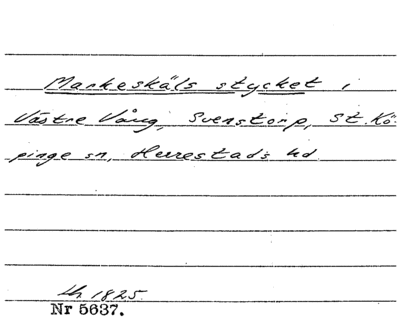 Markeskäls stycket i
Västre Vång, Svenstorp, St. Kö-
pinge sn, Herrestads hd
Lh 1825
Nr 5637.